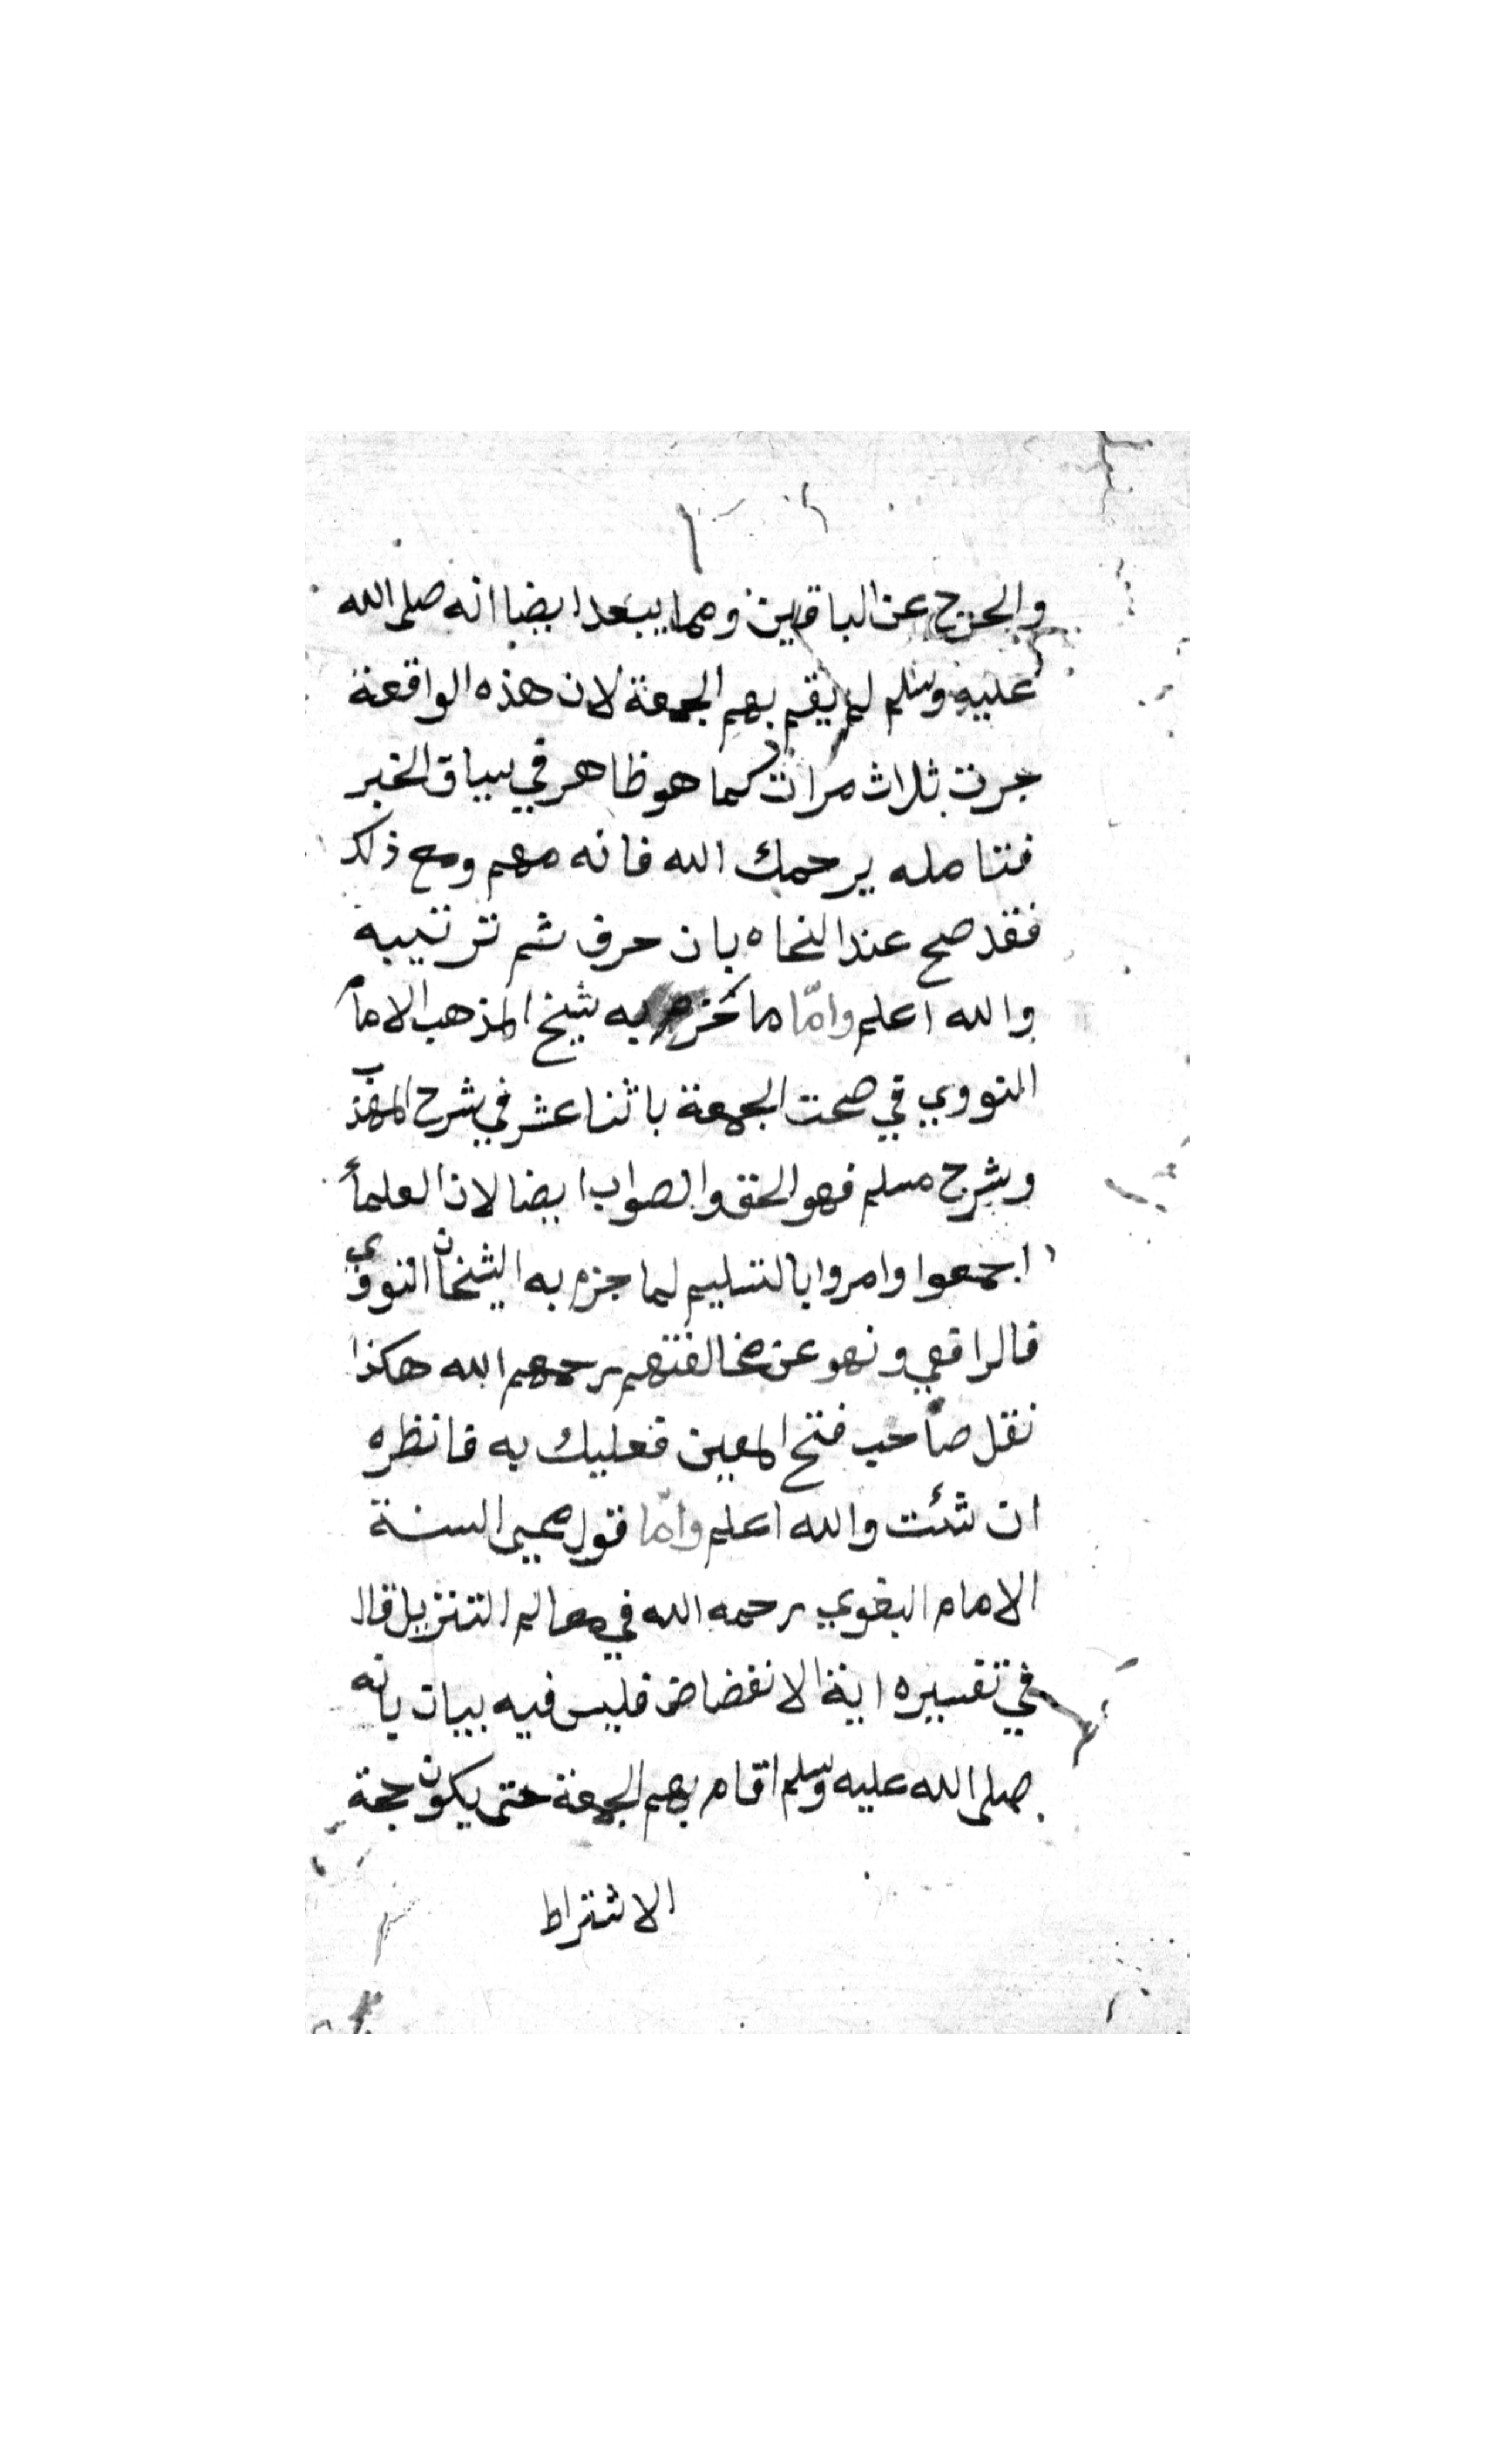 والحرج عن الباقين ومما يبعد ايضا انه صلى الله
عليه وسلم لم يقم بهم الجمعة لان هذه الواقعة
جرت ثلاث مرات كما هو ظاهر في سياق الخبر
فتامله يرحمك الله فانه مهم ومع ذلك
فقد صح عند النحاه بان حرف ثم ترتيبية
والله اعلم وامّا ما جزم به شيخ المذهب الامام
النووي في صحت الجمعة باثنا عشر في شرح المهذب
وشرح مسلم فهو الحق والصواب ايضا لان العلمأ
اجمعوا وامروا بالتسليم لما جزم به الشيخان النووي
فالرافعي ونهو عن مخالفتهم رحمهم الله هكذا
نقل صاحب فتح المعين فعليك به فانظره
ان شئت والله اعلم وامّا قول محيى السنة
الامام البغوي رحمه الله في معالم التنزيل قال
في تفسيره اية الانفضاض فليس فيه بيان بانه
صلى الله عليه وسلم اقام بهم الجمعة حتى يكون حجة
الاشتراط